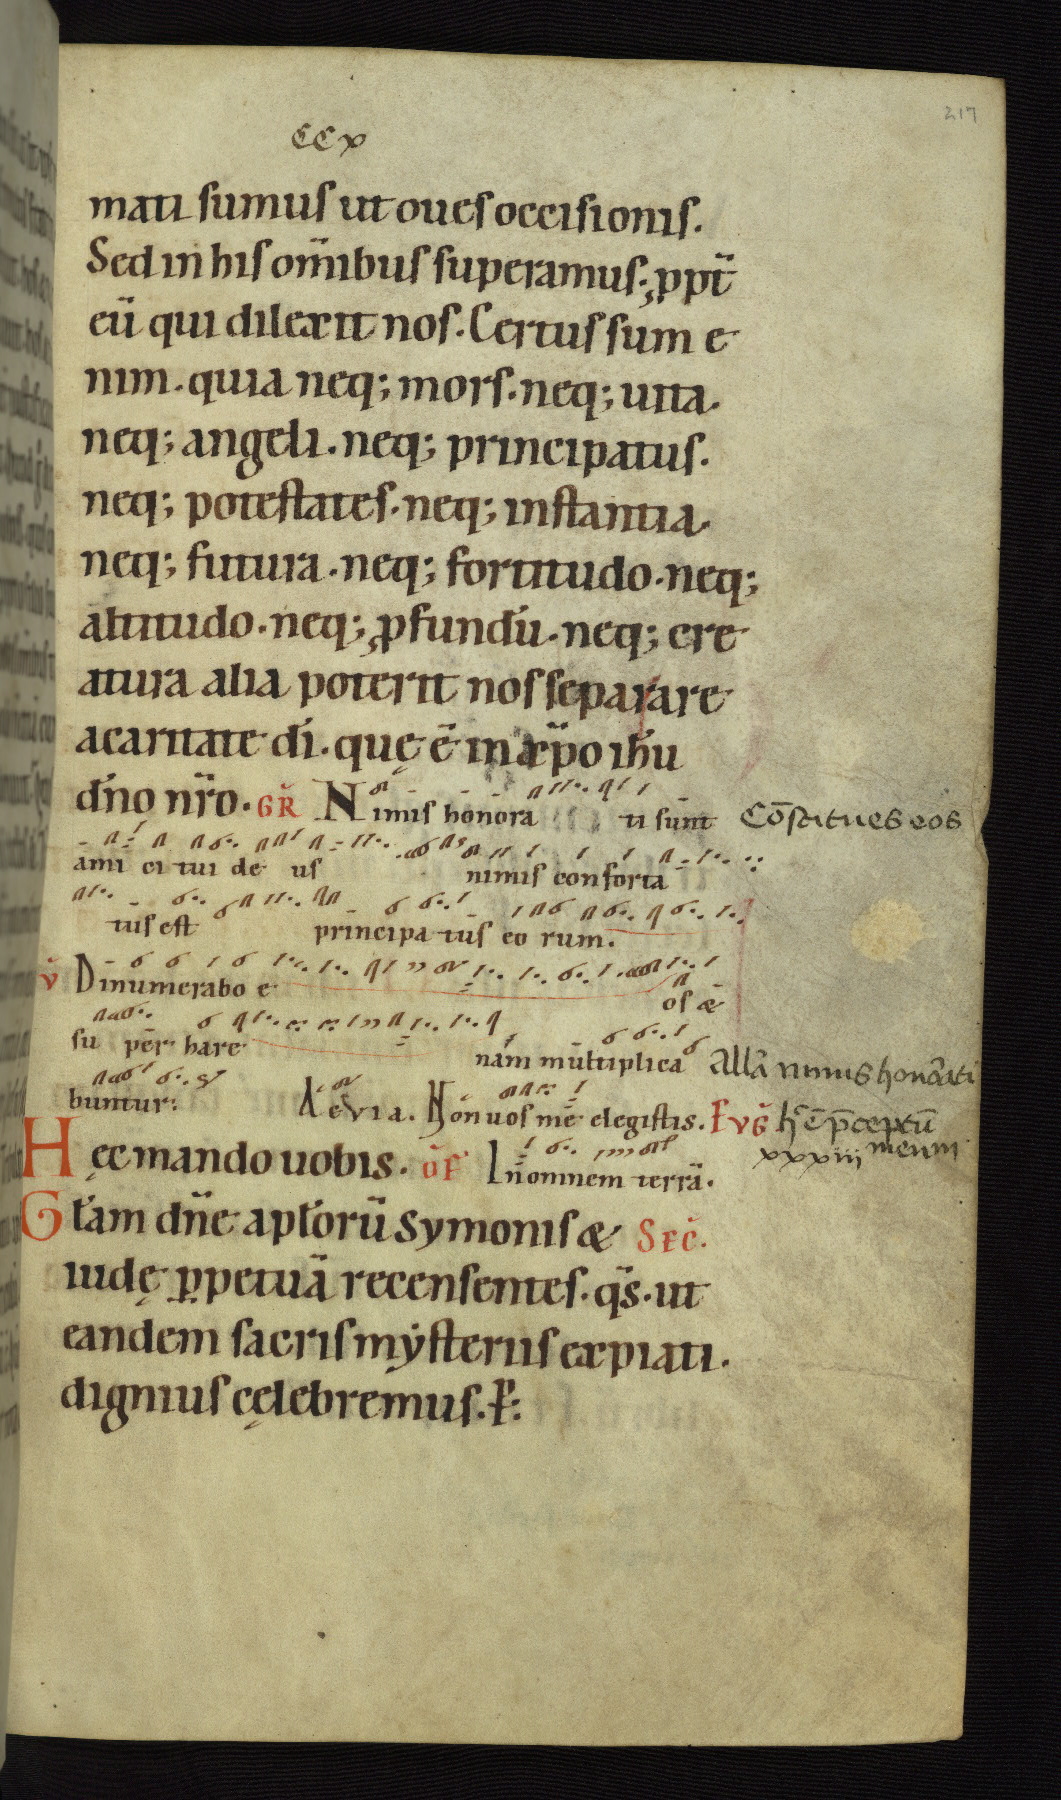 217
CCX
mati sumus ut oues occisionis.
Sed in his om̅ibus superamus. ꝓpt̅
eu̅ qui dilexit nos. Certus sum e
nim. quia neq; mors. neq; uita.
neq; angeli. neq; principatus.
neq; potestates. neq; instantia.
neq; futura. neq; fortitudo. neq;
altitudo. neq; ꝓfundu̅. neq; cre
atura alia poterit nos separare
a caritate di̅. quę e̅ in xp̅o ihu̅
dn̅o nr̅o. GR̅ Nimis honora ti sunt Co̅stitues eos
ami ci tui de us nimis conforta
tus est principa tus eo rum.
v̅ Dinumerabo e os &
su per hare nam multiplica Alla̅ nimis honorati
buntur. Aevia. Non uos me elegistis. EvG̅ h̅ e̅ p̅ceptu̅
meum
xxxiii
Hęc mando uobis. o̅F In omnem terra̅.
Gl̅am dn̅e apl̅oru̅ symonis & SEC̅.
iudę ꝑpetua̅ recensentes. q̅s. ut
eandem sacris mẏsteriis expiati.
dignius cęlebremus. P̲: